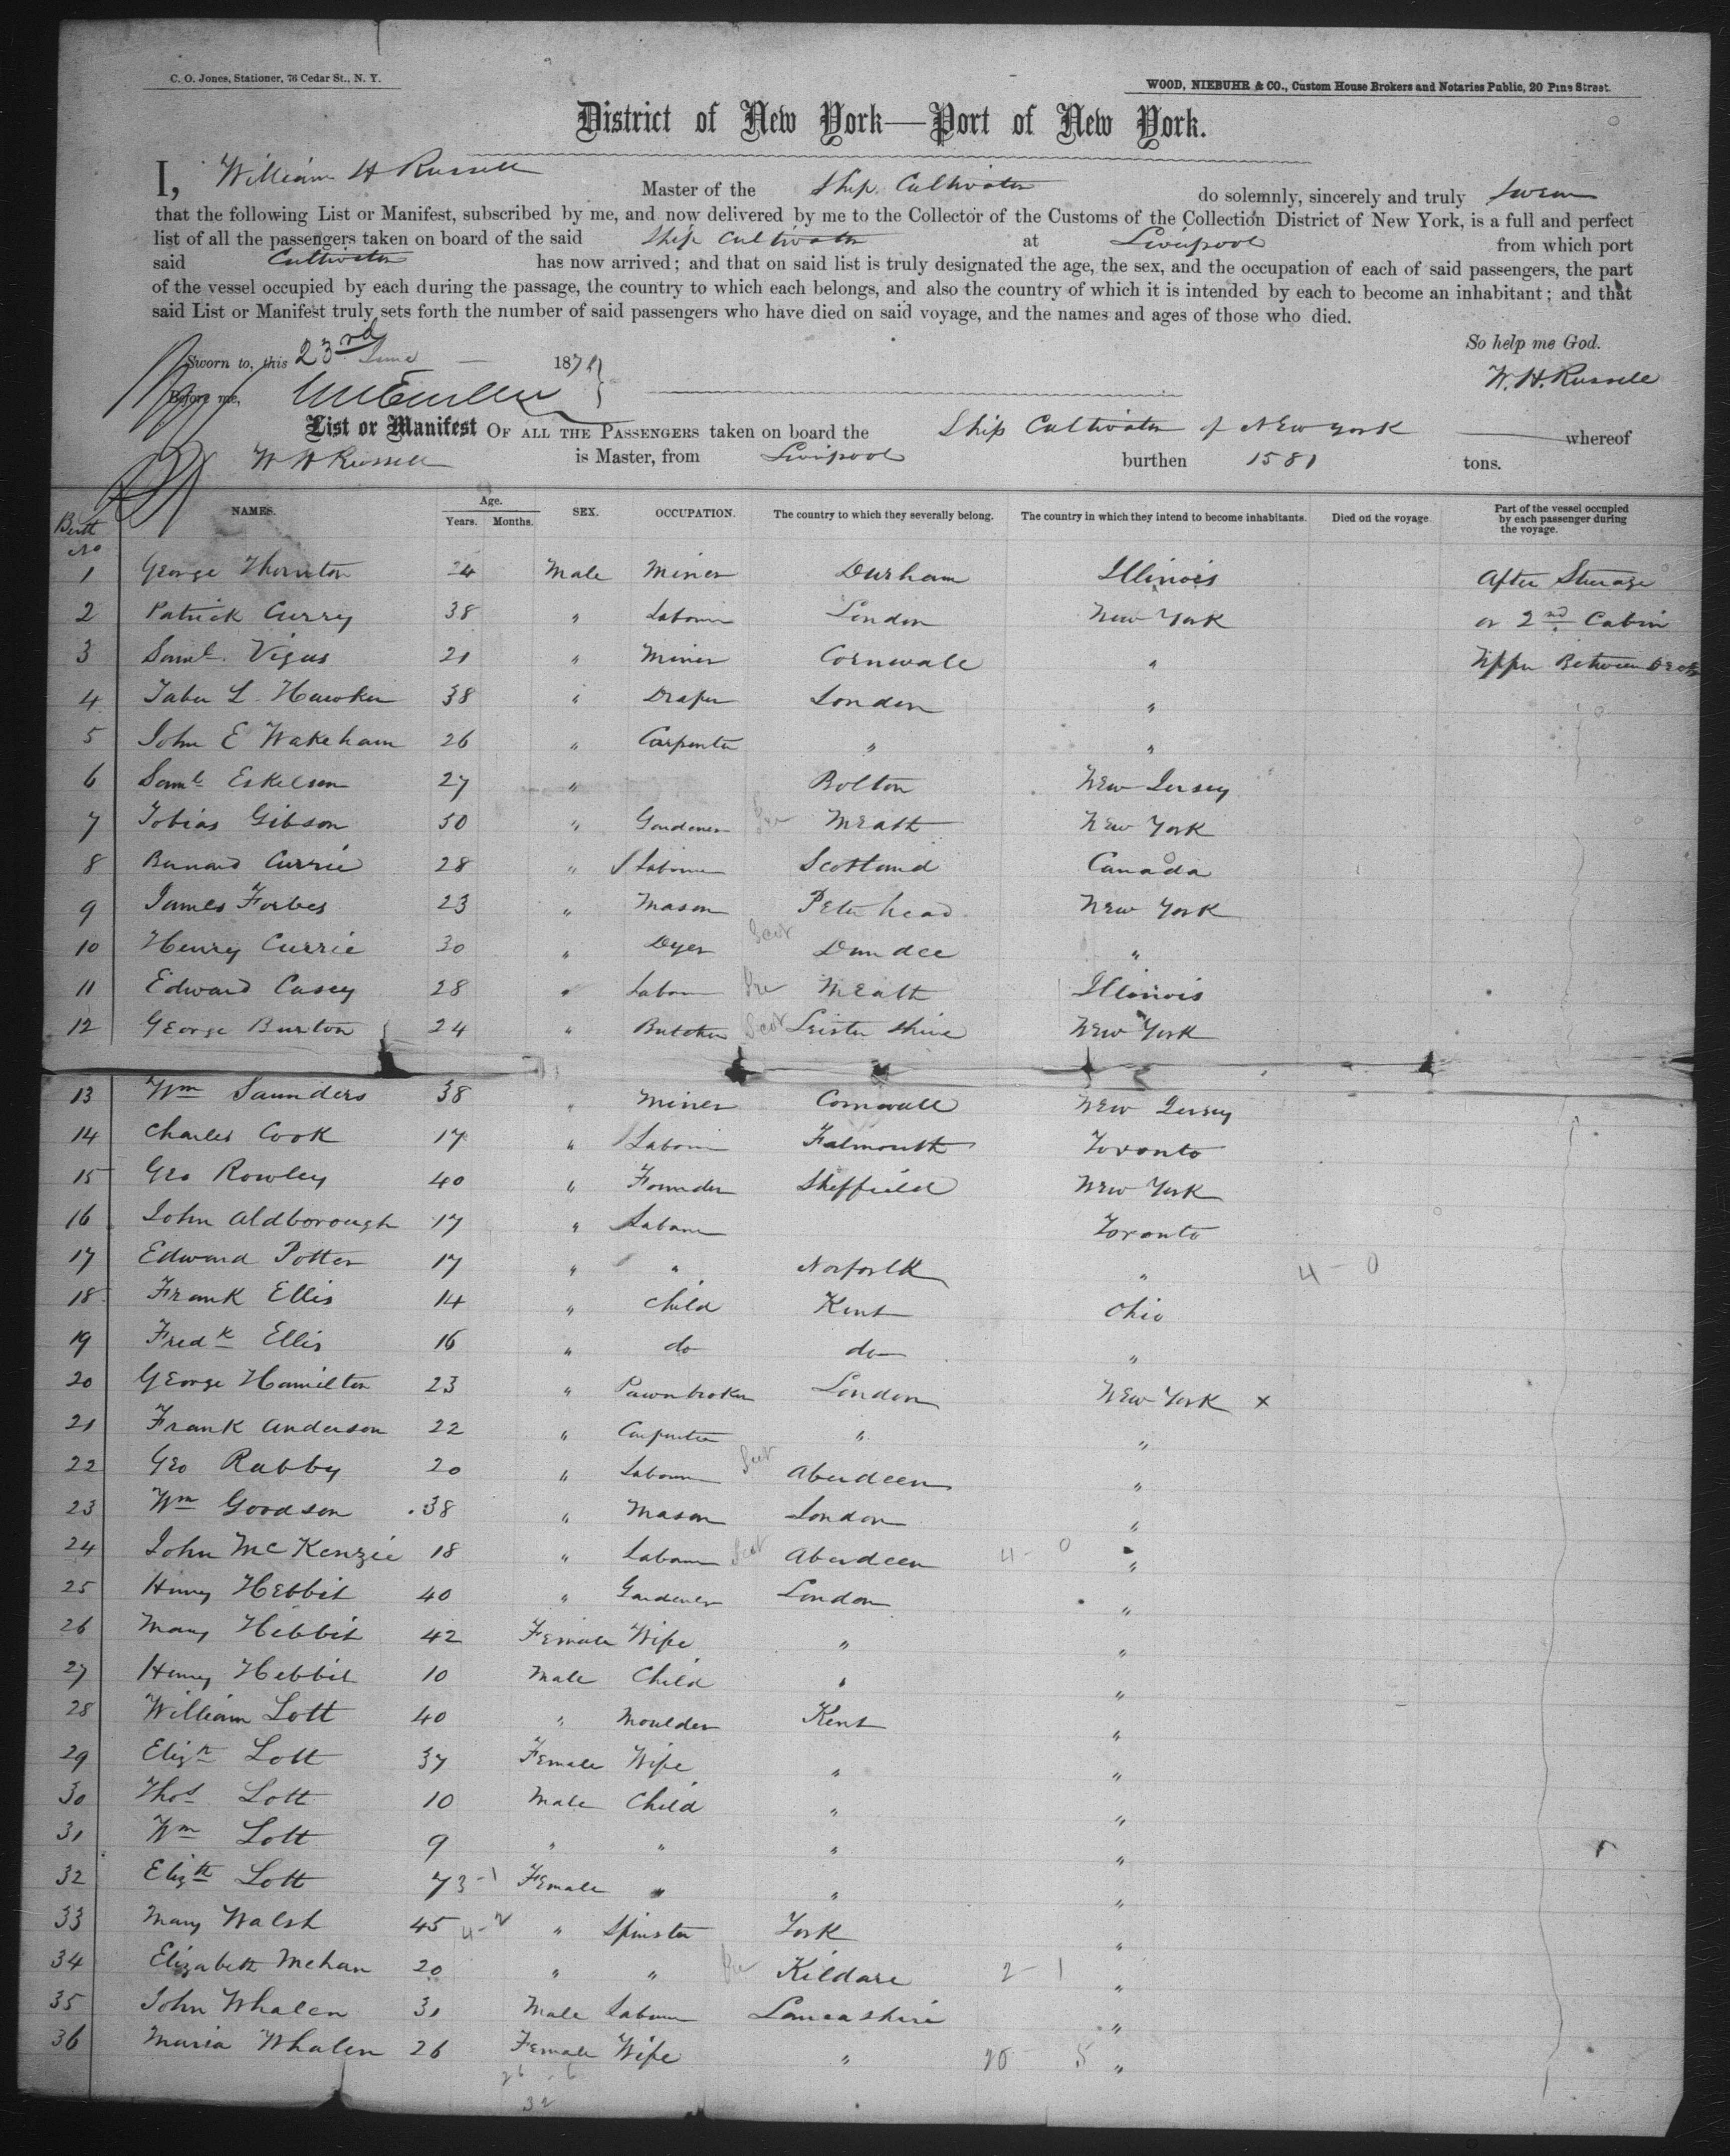 C. O. Jones, Stationer, 76 Cedar St., N. Y.
WOOD, NIEBUHR & CO., Custom House Brokers and Notaries Public, 20 Pine Street.
District of New York—Port of New York.
I, William H Russell Master of the Ship Cultivator do solemnly, sincerely and truly swear
that the following List or Manifest, subscribed by me, and now delivered by me to the Collector of the Customs of the Collection District of New York, is a full and perfect
list of all the passengers taken on board of the said Ship Cultivator at Liverpool from which port
said Cultivator has now arrived; and that on said list is truly designated the age, the sex, and the occupation of each of said passengers, the part
of the vessel occupied by each during the passage, the country to which each belongs, and also the country of which it is intended by each to become an inhabitant; and that
said List or Manifest truly sets forth the number of said passengers who have died on said voyage, and the names and ages of those who died.
So help me God.
Sworn to, this 23rd June 187
W. H. Russell
Before me,
List or Manifest OF ALL THE PASSENGERS taken on board the Ship Cultivator of New York whereof
W H Russell is Master, from Liverpool burthen 1581 tons.
Berth No NAMES. Age. Years. Months. SEX. OCCUPATION. The country to which they severally belong. The country in which they intend to become inhabitants. Died on the voyage. Part of the vessel occupied by each passenger during the voyage.
1 George Thornton 24 Male Miner Durham Illinois After Steerage
2 Patrick Curry 38 " Labourer London New York or 2nd Cabin
3 Saml. Vigus 21 " Miner Cornwall " Upper Between Decks
4 L. Hawker 38 " Draper London "
5 John E Wakeham 26 " Carpenter " "
6 Saml Eskelson 27 " Bolton New Jersey
7 Tobias Gibson 30 " Gardener Ire Meath New York
8 Bernard Currie 28 " Labourer Scotland Canada
9 James Forbes 23 " Mason Peterhead New York
10 Henry Currie 30 " Dyer Scot Dundee "
11 Edward Casey 28 " Labour Ire Meath Illinois
12 George Burton 24 " Butcher Scot Leistershire New York
13 Wm Saunders 38 " Miner Cornwall New Jersey
14 Charles Cook 17 " Labourer Falmouth Toronto
15 Geo Rowley 40 " Founder Sheffield New York
16 John Aldborough 17 " Labourer Toronto
17 Edward Potter 17 " " Norfolk " 4 - 0
18 Frank Ellis 14 " Child Kent Ohio
19 Fredk Ellis 16 " do do "
20 George Hamilton 23 " Pawnbroker London New York x
21 Frank Anderson 22 " Carpenter " "
22 Geo Rabby 20 " Labourer Scot Aberdeen "
23 Wm Goodson 38 " Mason London "
24 John McKenzie 18 " Labourer Scot Aberdeen 4 - 0 "
25 Henry Hebbit 40 " Gardener London "
26 Mary Hebbit 42 Female Wife " "
27 Henry Hebbit 10 Male Child " "
28 William Lott 40 " Moulder Kent "
29 Elizth Lott 37 Female Wife " "
30 Thos Lott 10 Male Child " "
31 Wm Lott 9 " " " "
32 Elizth Lott 7 3-1 Female " " "
33 Mary Walsh 45 4-2 " Spinster York "
34 Elizabeth Mehan 20 " " Ire Kildare 2 - 1 "
35 John Whalen 31 Male Labour Lancashire "
36 Maria Whalen 26 Female Wife " 5 "
26 6
32